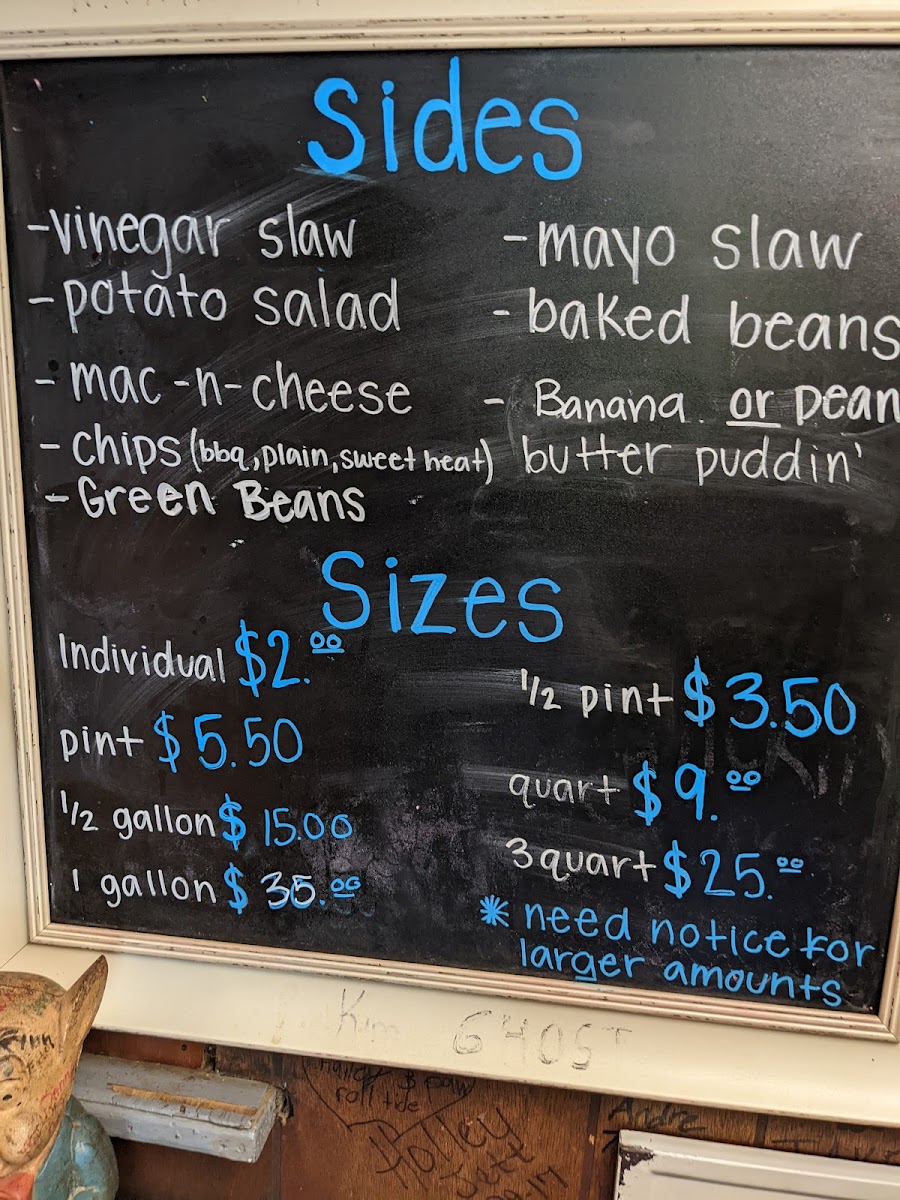 Sides
-vinegar slaw
- potato salad
- mac-n-cheese
- chips (bbq, plain, sweet heat)
- Green Beans
- mayo slaw
- baked beans
- Banana or pean
butter puddin'
Sizes
Individual $2.00
pint $5.50
1/2 gallon $15.00
1 gallon $35.00
1/2 pint $3.50
quart $9.00
3 quart $25.00
* need notice for
larger amounts
Kim GHOST
roll tide
Holley
Jett